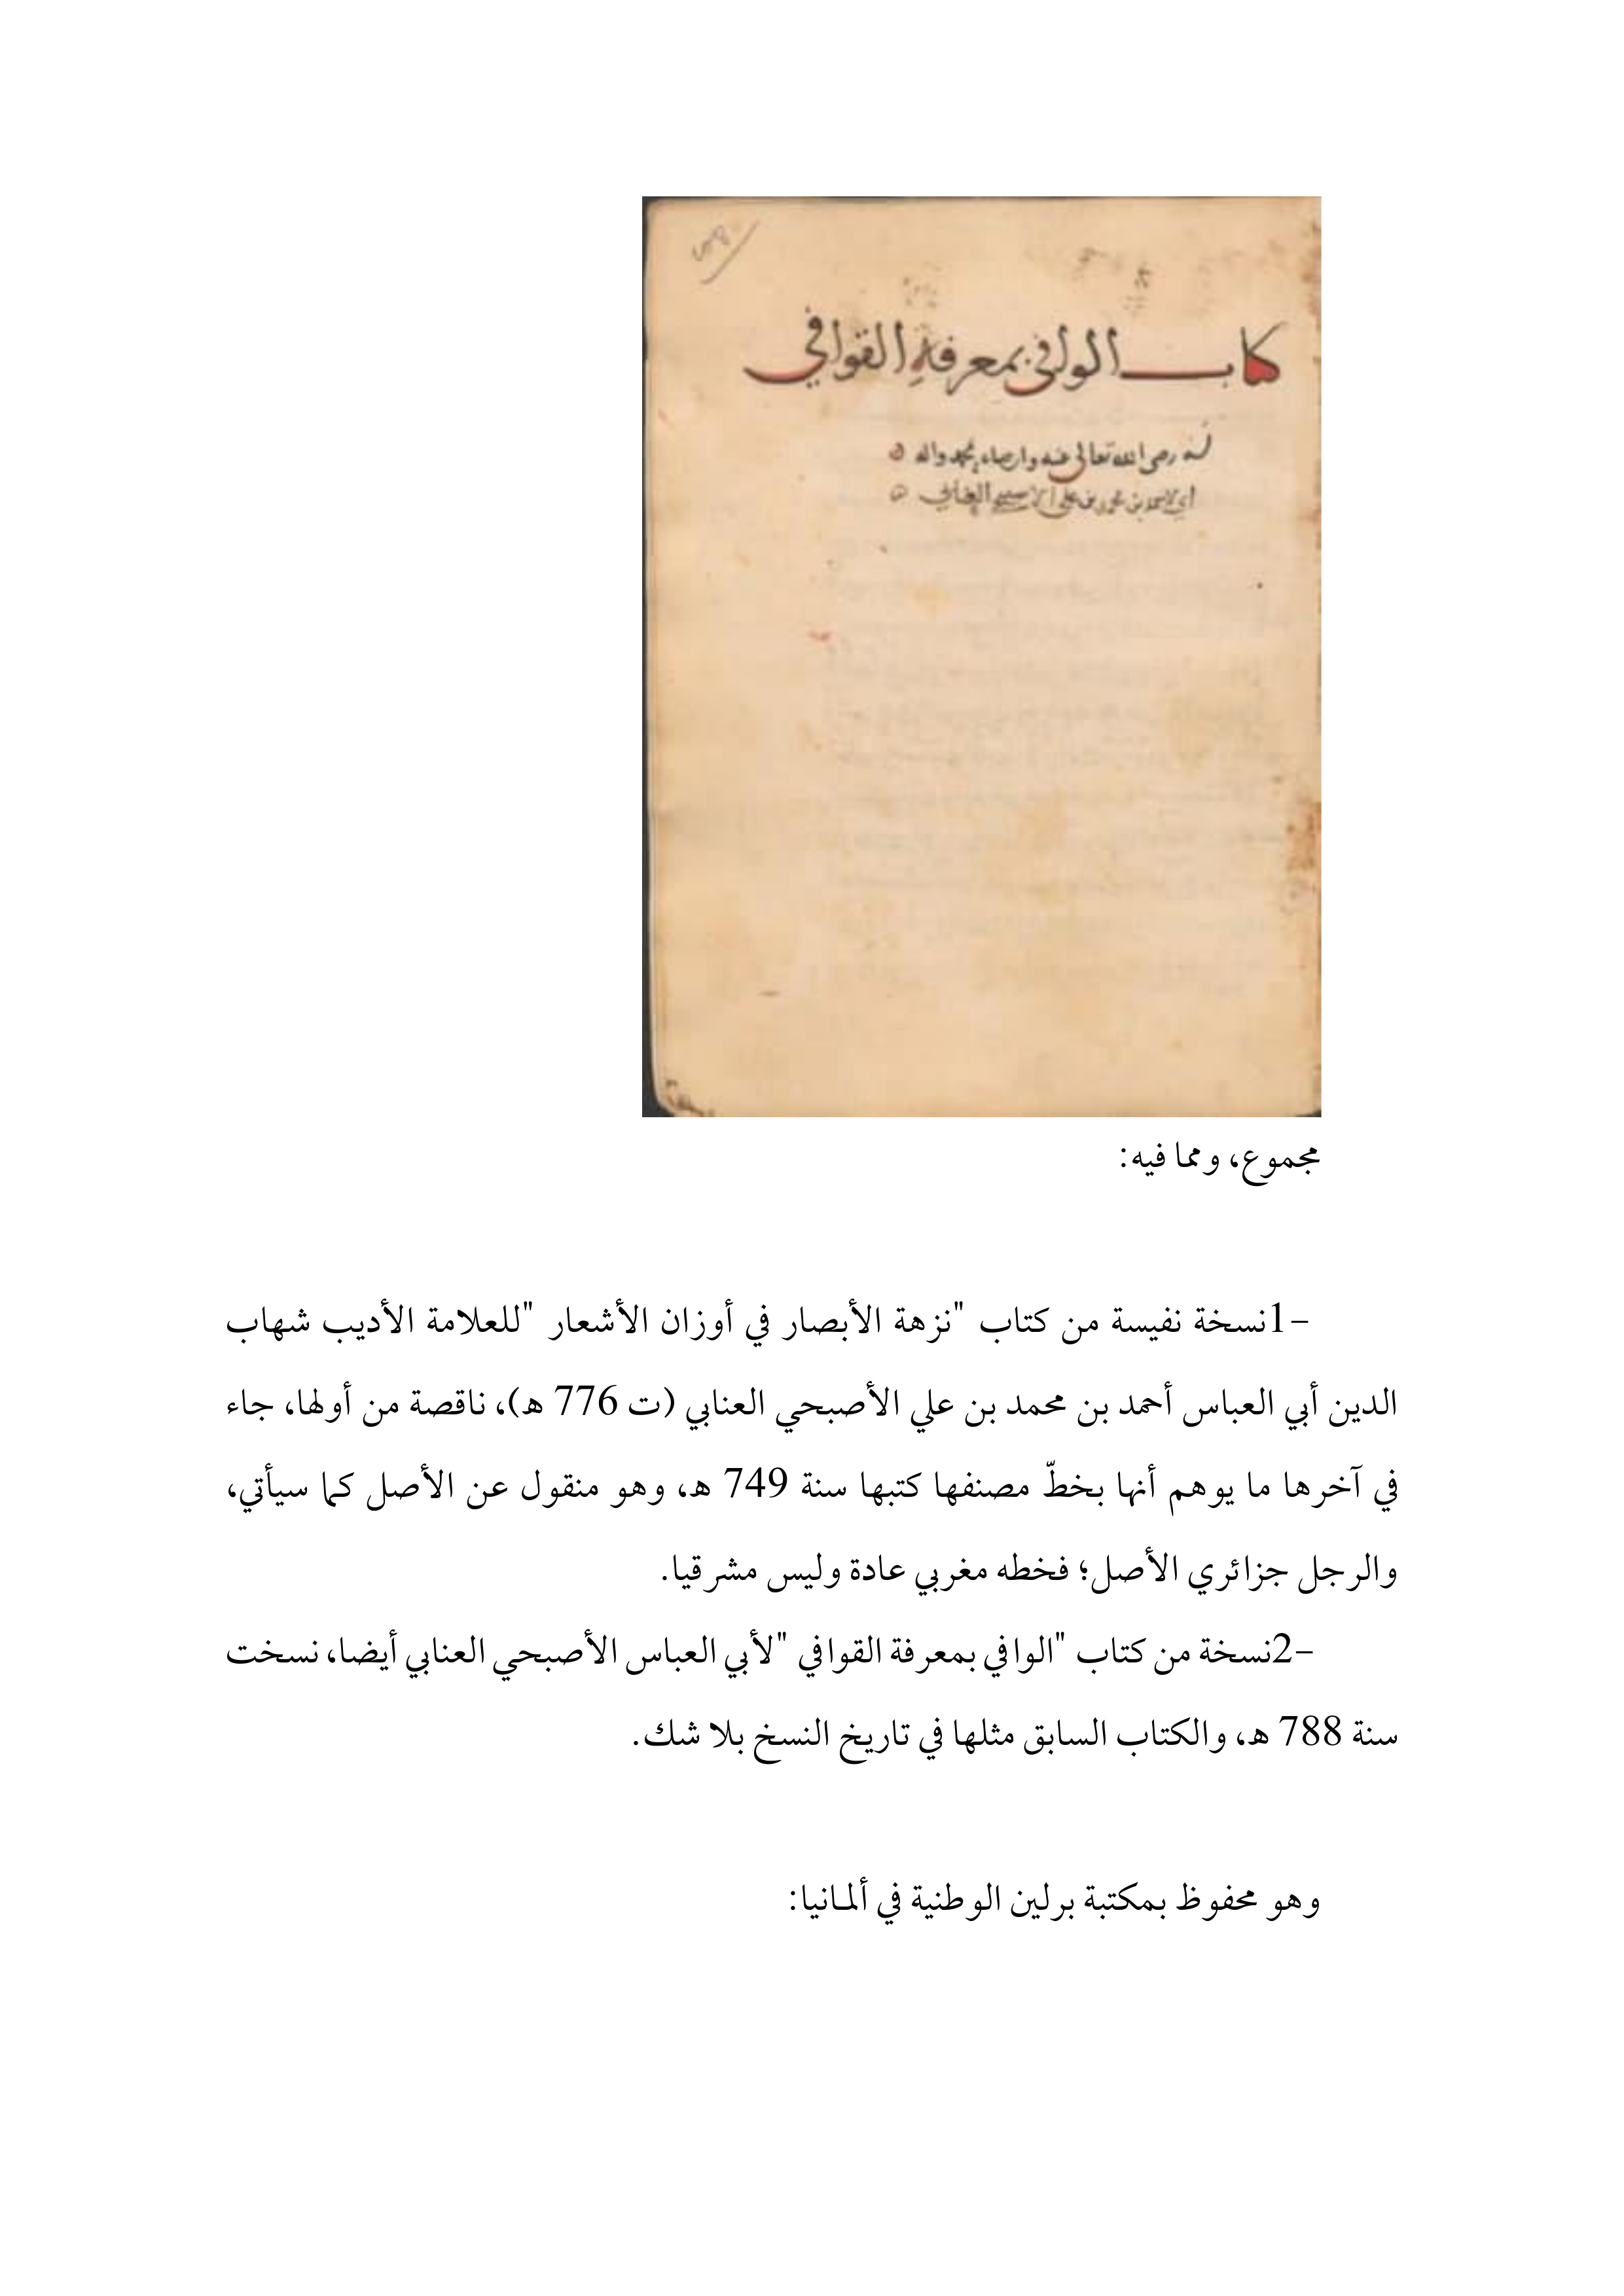 كتاب الوافي بمعرفة القوافي
له رضى الله تعالى عنه وارضاه بمحمد واله
اي لاحمد بن محمد بن علي الاصبحي العنابي
مجموع، ومما فيه:
-1نسخة نفيسة من كتاب "نزهة الأبصار في أوزان الأشعار "للعلامة الأديب شهاب
الدين أبي العباس أحمد بن محمد بن علي الأصبحي العنابي (ت 776 هـ)، ناقصة من أولها، جاء
في آخرها ما يوهم أنها بخطّ مصنفها كتبها سنة 749 هـ، وهو منقول عن الأصل كما سيأتي،
والرجل جزائري الأصل؛ فخطه مغربي عادة وليس مشرقيا.
-2نسخة من كتاب "الوافي بمعرفة القوافي "لأبي العباس الأصبحي العنابي أيضا، نسخت
سنة 788 هـ، والكتاب السابق مثلها في تاريخ النسخ بلا شك.
وهو محفوظ بمكتبة برلين الوطنية في ألمانيا: